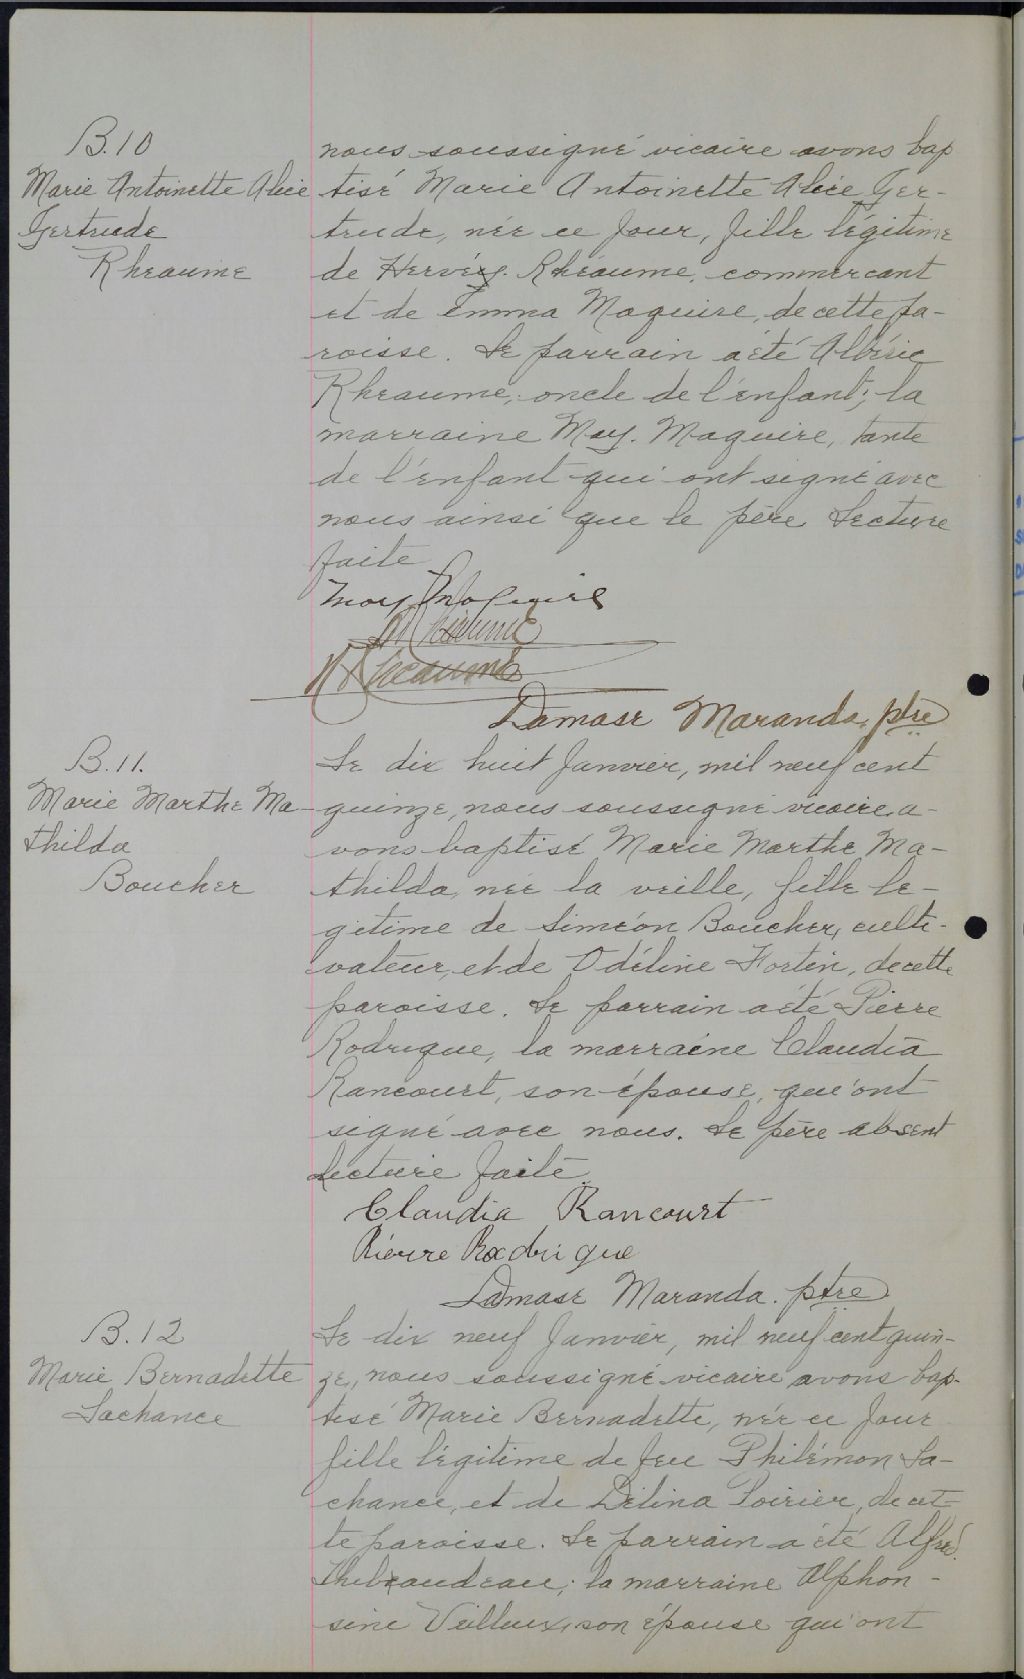 B.10
Marie Antoinette Alice
Gertrude
Rheaume
nous soussigné vicaire avons bap
tisé Marie Antoinette Alice Ger-
trude, née ce jour, fille légitime
de Hervéy. Rhéaume, commercant
et de Emma Maguire, de cette pa-
roisse. Le parrain a été Albéric
Rheaume, oncle de l'enfant; la
marraine May. Maguire, tante
de l'enfant qui ont signé avec
nous ainsi que le père Lecture
faite
May Maguire
Rhéaume
Rheaume
Damase Maranda, ptre
B.11.
Marie Marthe Ma-
thilda
Boucher
Le dix huit Janvier, mil neuf cent
quinze, nous soussigné vicaire, a-
vons baptisé Marie Marthe Ma-
thilda, née la veille, fille lé-
gitime de Siméon Boucher, culti-
vateur, et de Odéline Fortin, de cette
paroisse. Le parrain a été Pierre
Rodrigue, la marraine Claudia
Rancourt, son épouse, qui ont
signé avec nous. Le père absent
Lecture faite.
Claudia Rancourt
Pierre Rodrigue
Damase Maranda. ptre
B.12
Marie Bernadette
Lachance
Le dix neuf Janvier, mil neuf cent quin-
ze, nous soussigné vicaire avons bap-
tisé Marie Bernadette, née ce jour
fille légitime de feu Philémon La-
chance, et de Délina Poirier, de cet-
te paroisse. Le parrain a été Alfred
Thibeaudeau; la marraine Alphon-
sine Veilleux, son épouse qui ont